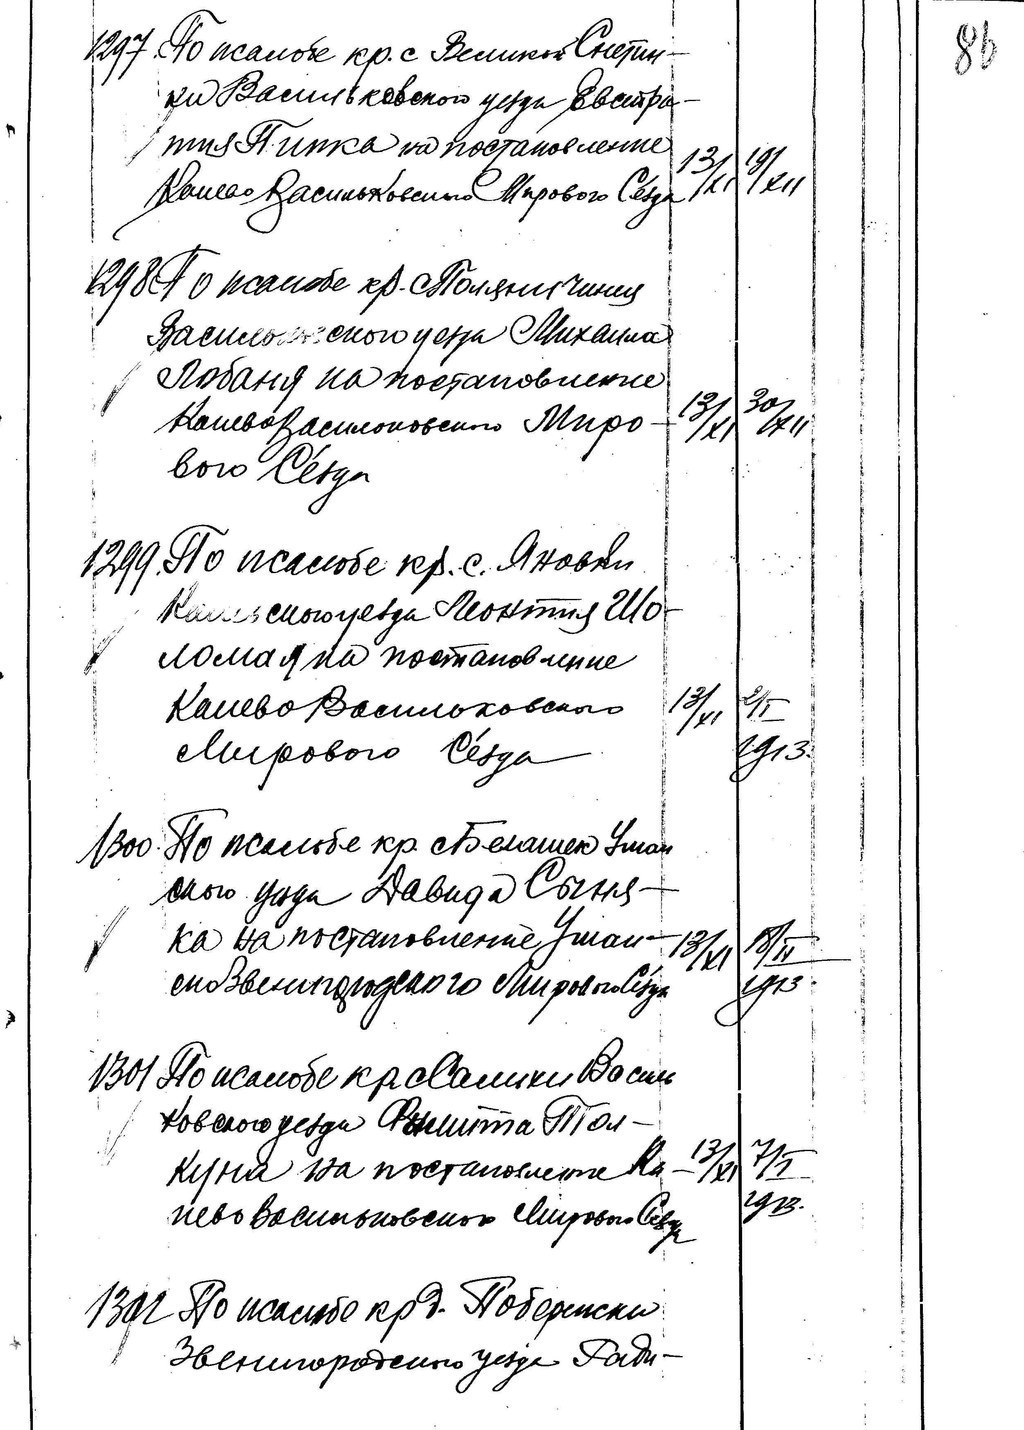 86
1297. По жалобе кр. с Великой Снетин-
ки Васильковского уезда Евстра-
тия Пипка на постановление
Канево Васильковского Мирового Сʼезда 13/XI 19/XII
1298 По жалобе кр. с Поляниченец
Васильковского уезда Михаила
Лобаня на постановление
Канево Васильковского Миро- 13/XI 30/XII
вого Сʼезда
1299. По жалобе кр. с. Яновки
Каневского уезда Леонтия Шо-
ломая на постановление
Канево Васильковского 13/XI 2/I
Мирового Сʼезда 1913.
1300. По жалобе кр с Бегашек Уман
ского уезда Давида Сыня-
ка на постановление Уман- 13/XI 18/II
ско Звенигородского Мирового Сʼезда 1913.
1301 По жалобе кр с Салихи Василь
ковского уезда Филиппа Тол-
куна на постановление Ка- 13/XI 7/I
нево Васильковского Мирового Сʼезда 1913.
1302 По жалобе кр д. Побережки
Звенигородского уезда Гади-